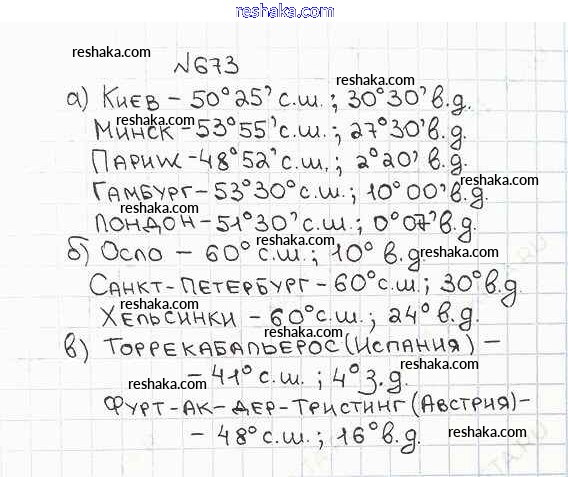 reshaka.com
reshaka.com
№673
reshaka.com
reshaka.com
а) Киев – 50°25' с.ш.; 30°30' в.д.
reshaka.com
Минск – 53°55' с.ш.; 27°30' в.д.
reshaka.com
Париж – 48°52' с.ш.; 2°20' в.д.
reshaka.com
Гамбург – 53°30° с.ш.; 10°00' в.д.
reshaka.com
Лондон – 51°30' с.ш.; 0°07' в.д.
reshaka.com
б) Осло – 60° с.ш.; 10° в.д.
reshaka.com
Санкт-Петербург – 60° с.ш.; 30° в.д.
reshaka.com
Хельсинки – 60° с.ш.; 24° в.д.
reshaka.com
в) Торрекабальерос (Испания) –
reshaka.com
– 41° с.ш.; 4° з.д.
reshaka.com
Фурт-ак-дер-Тристинг (Австрия) –
– 48° с.ш.; 16° в.д.
reshaka.com
reshaka.com